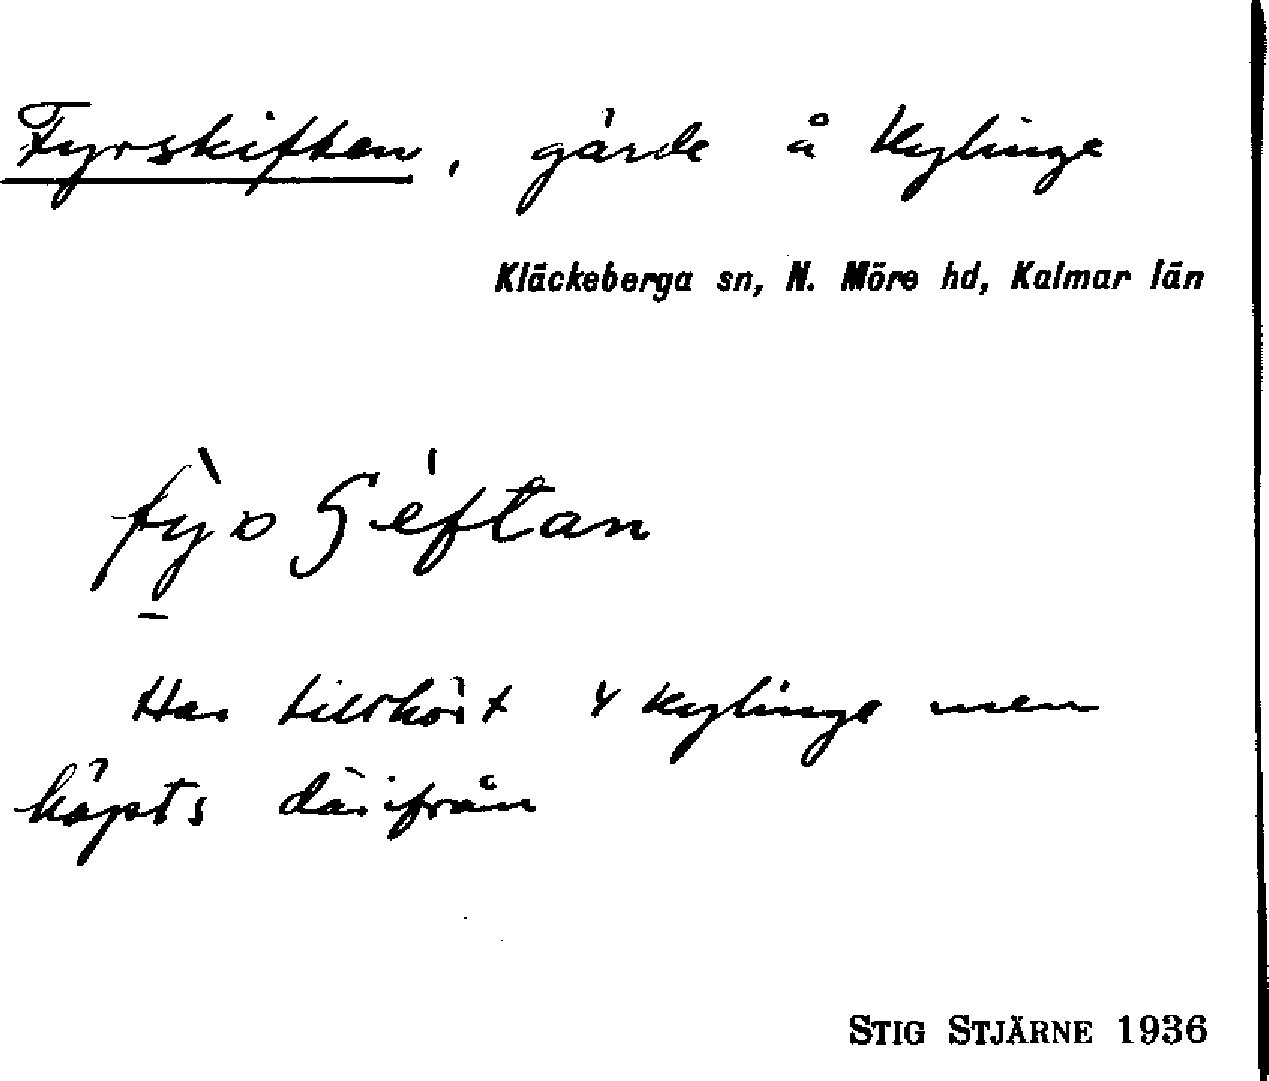 Fyrskiften, gärde å Kylinge
Kläckeberga sn, N. Möre hd, Kalmar län
Har tillhört 4 Kylinge men
köpts därifrån
STIG STJÄRNE 1936